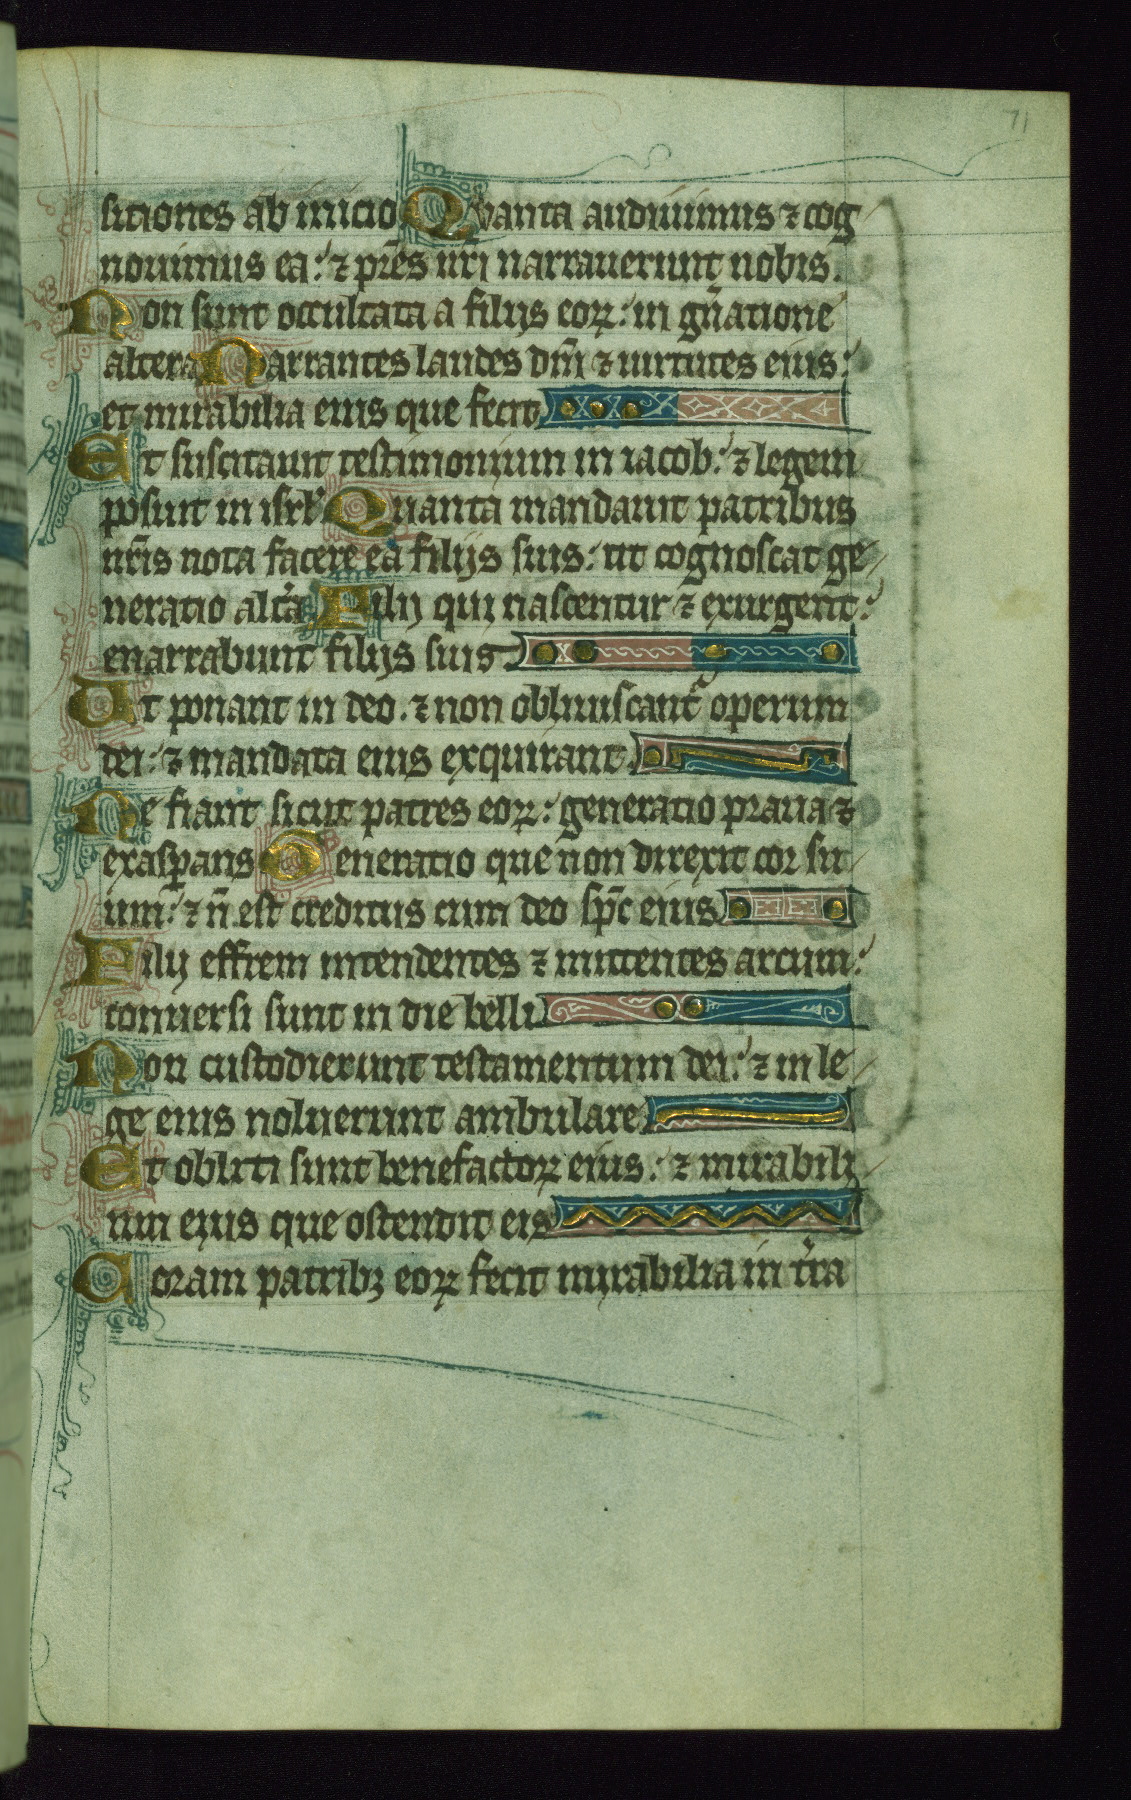 71
sitiones ab inicio Quanta audiuimus ⁊ cog
nouimus ea: ⁊ pr̃es nr̃i narrauerunt nobis.
Non sunt occultata a filijs eoꝝ: in gn̄atione
altera Narrantes laudes dn̄i ⁊ uirtutes eius:
et mirabilia eius que fecit
Et suscitauit testimonium in iacob: ⁊ legem
posuit in isrl̓ Quanta mandauit patribus
nr̃is nota facere ea filijs suis: ut cognoscat ge
neratio alt̓a Filij qui nascentur ⁊ exurgent:
enarrabunt filijs suis
Ut ponant in deo. ⁊ non obliuiscant᷑ operum
dei: ⁊ mandata eius exquirant.
Ne fiant sicut patres eoꝝ: generatio praua ⁊
exasꝑans Generatio que non direxit cor su
um: ⁊ n̄ est creditus cum deo sp̄c eius
Filij effrem intendentes ⁊ mittentes arcum:
conuersi sunt in die belli
Non custodierunt testamentum dei: ⁊ in le
ge eius noluerunt ambulare
Et obliti sunt benefactoꝝ eius: ⁊ mirabili
um eius que ostendit eis
Coram patribꝫ eoꝝ fecit mirabilia in t̓ra